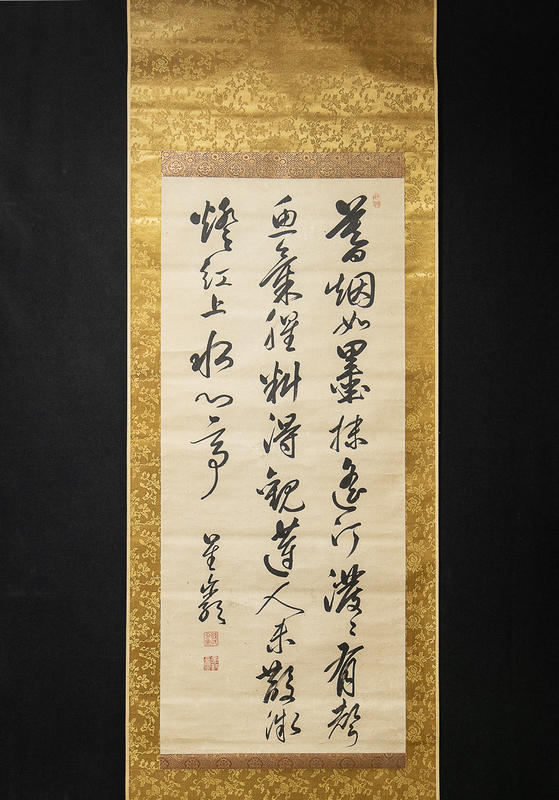 暮烟如墨抹遙汀潑〻有聲
魚氣腥料得觀蓮人未散微
燈紅上水心亭
星巖